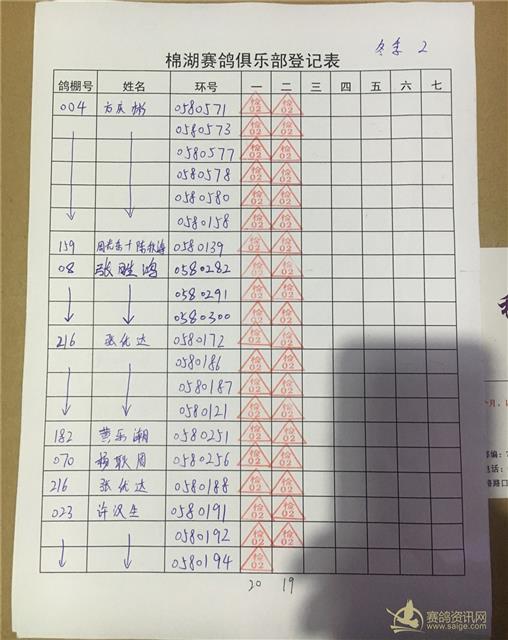 冬季 2
棉湖赛鸽俱乐部登记表
鸽棚号 姓名 环号 一 二 三 四 五 六 七
004 方庆彬 0580571 检02 检02
0580573 检02 检02
0580577 检02 检02
0580578 检02 检02
0580580 检02 检02
0580158 检02 检02
159 0580139 检02 检02
08 张胜鸿 0580282 检02 检02
0580291 检02 检02
0580300 检02 检02
216 张优达 0580172 检02 检02
0580186 检02 检02
0580187 检02 检02
0580121 检02 检02
182 黄乐潮 0580251 检02 检02
070 杨联周 0580256 检02 检02
216 张优达 0580188 检02 检02
023 许汉生 0580191 检02 检02
0580192 检02 检02
0580194 检02
20 19
邮编:
电话:
赛鸽资讯网
www.saige.com